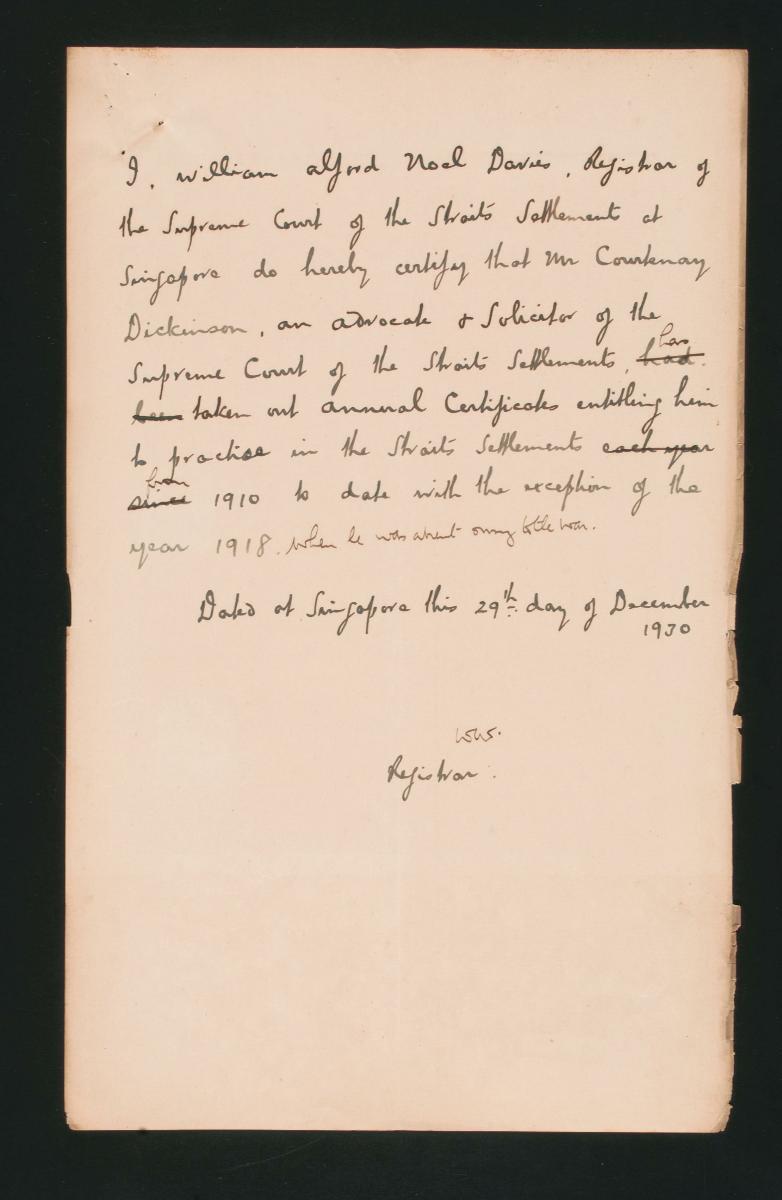 I, William Alford Noel Davies, Registrar of
the Supreme Court of the Straits Settlements at
Singapore do hereby certify that Mr Courtenay
Dickinson, an advocate & Solicitor of the
has
Supreme Court of the Straits Settlements, had
been taken out annual Certificates entitling him
to practise in the Straits Settlements each year
from
since 1910 to date with the exception of the
year 1918. when he was absent owing to the war.
Dated at Singapore this 29th day of December
1930
Registrar.